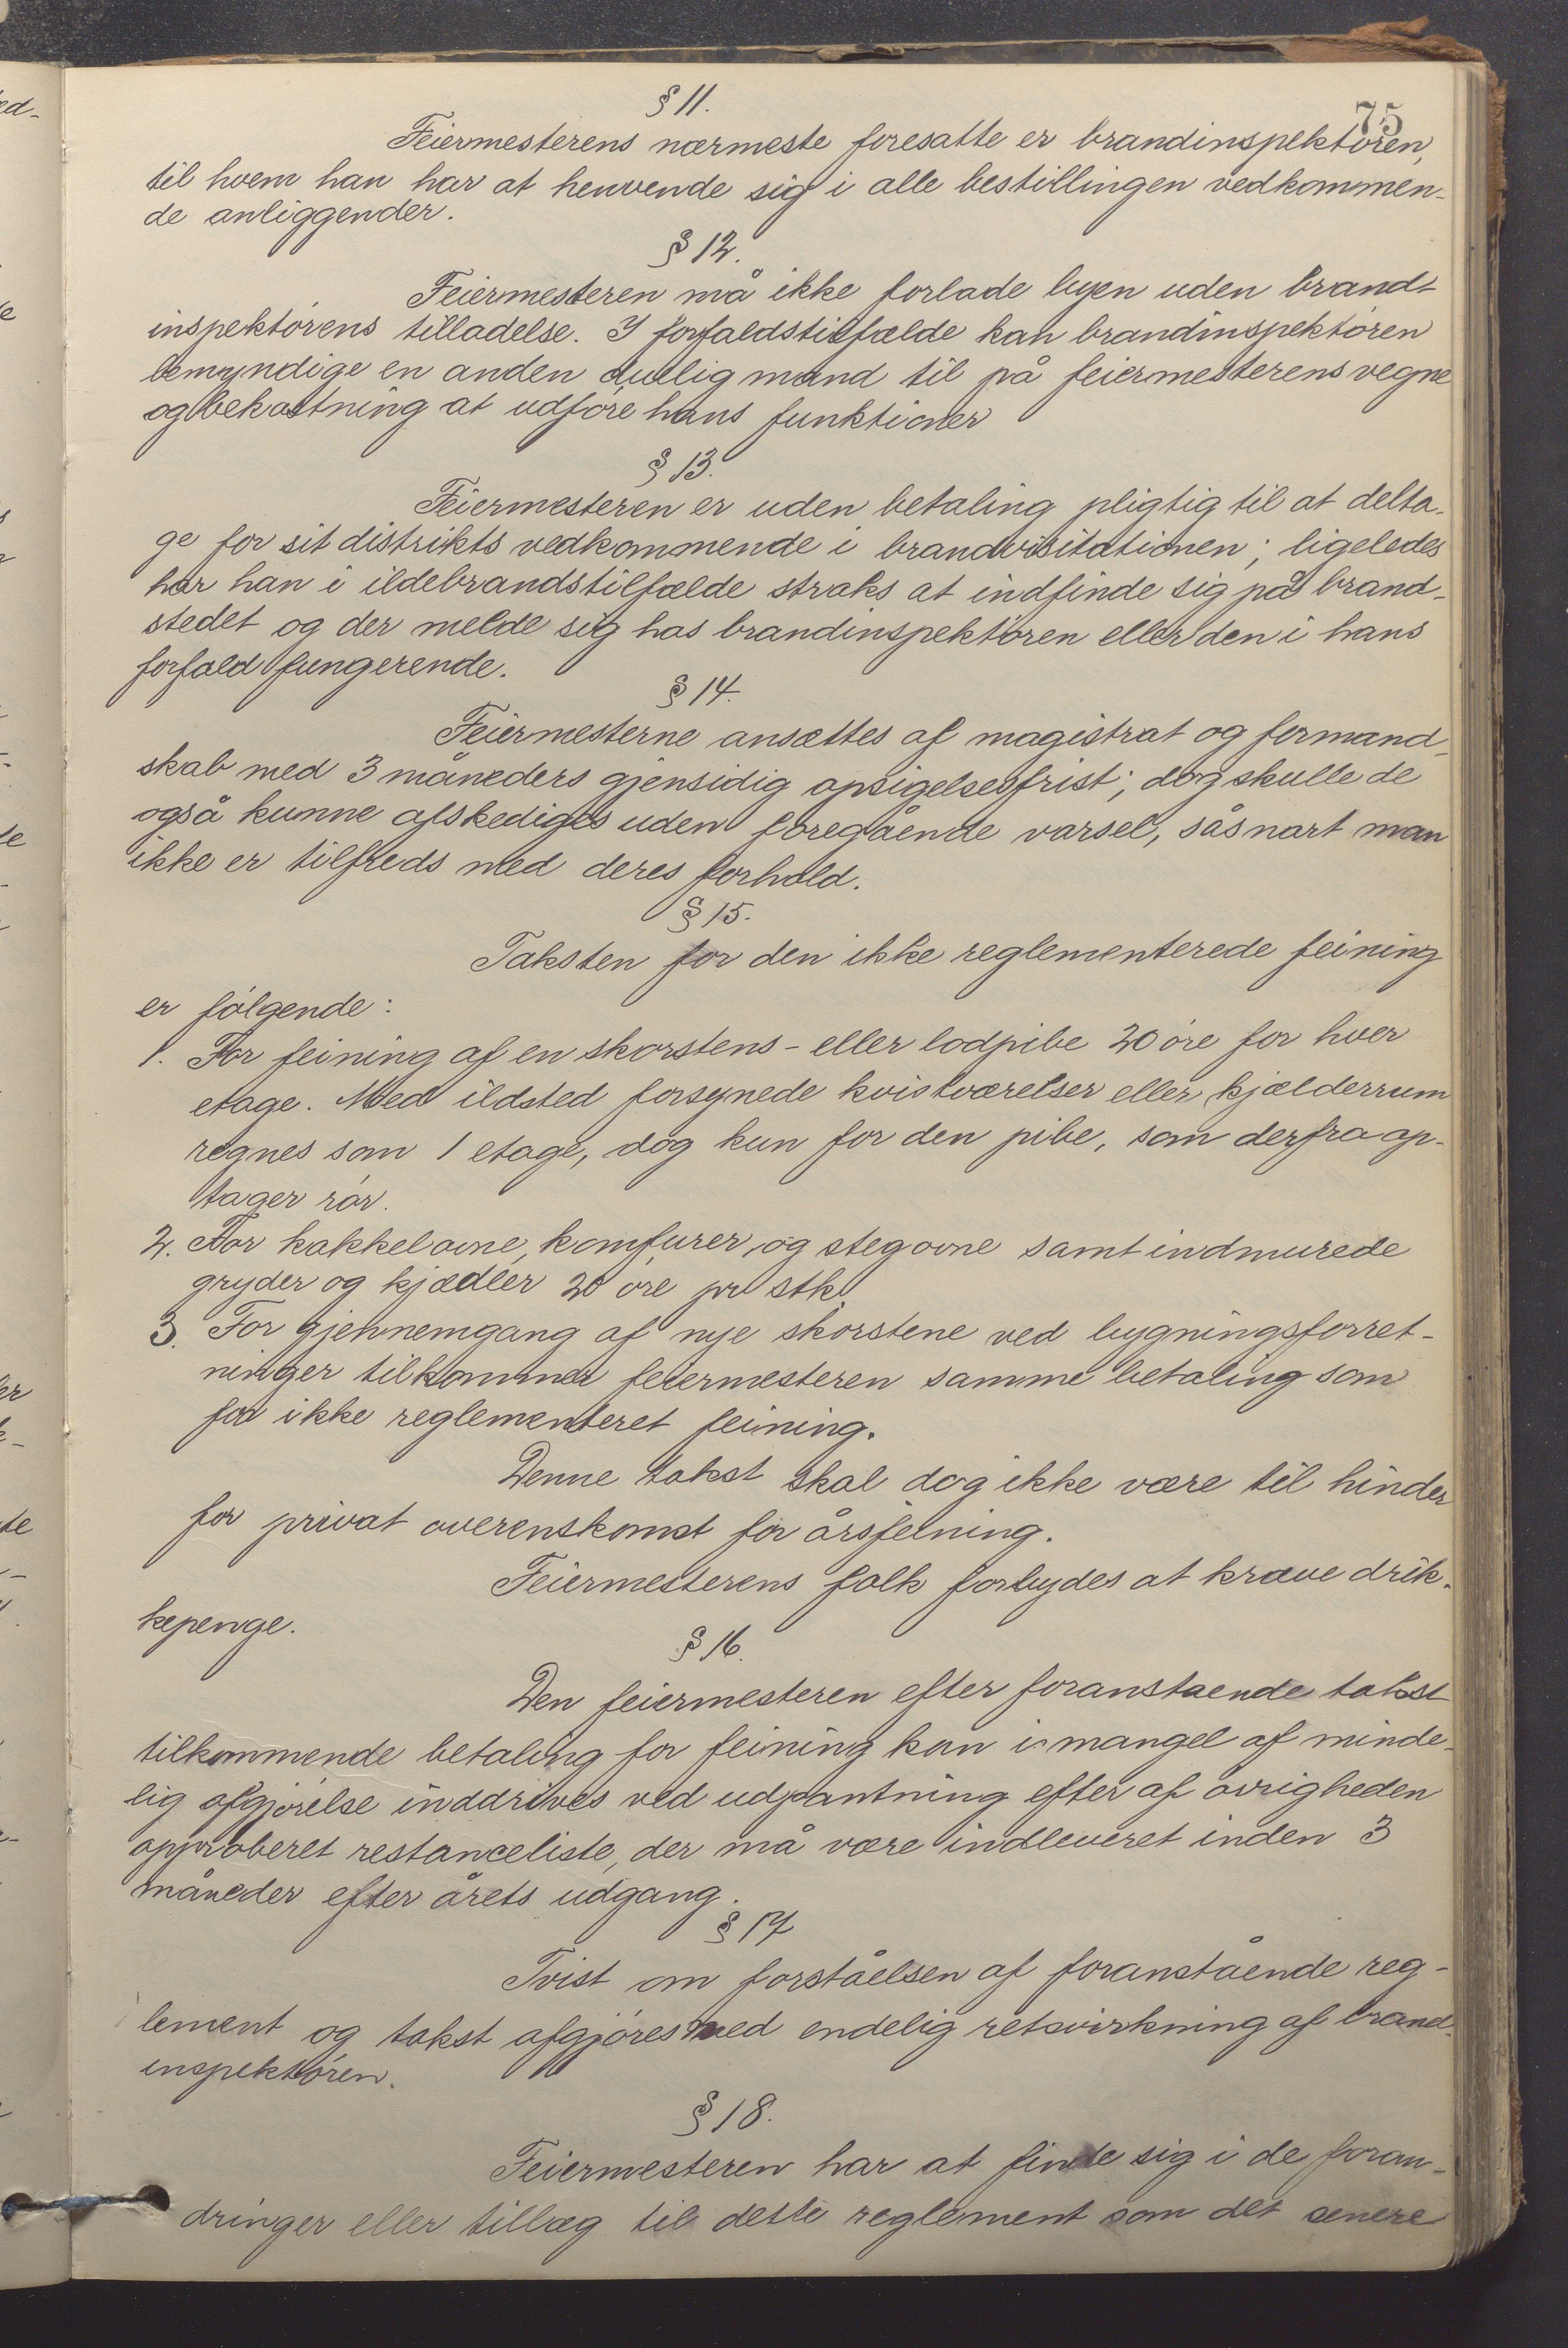 75
§ 11.
Feiermesterens nærmeste foresatte er brandinspektøren,
til hvem han har at henvende sig i alle bestillingen vedkommen-
de anliggender.
§ 12.
Feiermesteren må ikke forlade byen uden brand-
inspektørens tilladelse. I forfaldstilfælde kan brandinspektøren
bemyndige en anden duelig mand til på feiermesterens vegne
og bekostning at udføre hans funktioner
§ 13.
Feiermesteren er uden betaling pligtig til at delta-
ge for sit distrikts vedkommende i brandvisitationen; ligeledes
har han i ildebrandstilfælde straks at indfinde sig på brand-
stedet og der melde sig hos brandinspektøren eller den i hans
forfald fungerende.
§ 14.
Feiermesterne ansættes af magistrat og formand-
skab med 3 måneders gjensidig opsigelsesfrist; dog skulle de
også kunne afskediges uden foregående varsel, såsnart man
ikke er tilfreds med deres forhold.
§ 15.
Taksten for den ikke reglementerede feining
er følgende:
1. For feining af en skorstens- eller lodpibe 20 øre for hver
etage. Med ildsted forsynede kvistværelser eller kjælderrum
regnes som 1 etage, dog kun for den pibe, som derfra op-
tager rør.
2. For kakkelovne, komfurer og stegovne samt indmurede
gryder og kjædler 20 øre pr stk.
3. For gjennemgang af nye skorstene ved bygningsforret-
ninger tilkommer feiermesteren samme betaling som
for ikke reglementeret feining.
Denne takst skal dog ikke være til hinder
for privat overenskomst for årsfeining.
Feiermesterens folk forbydes at kræve drik-
kepenge.
§ 16.
Den feiermesteren efter foranstaende takst
tilkommende betaling for feining kan i mangel af minde-
lig afgjørelse inddrives ved udpantning efter af øvrigheden
approberet restanceliste, der må være indleveret inden 3
måneder efter årets udgang.
§ 17
Tvist om forståelsen af foranstående reg-
lement og takst afgjøres med endelig retsvirkning af brand-
inspektøren.
§ 18.
Feiermesteren har at finde sig i de foran-
dringer eller tillæg til dette reglement som det senere